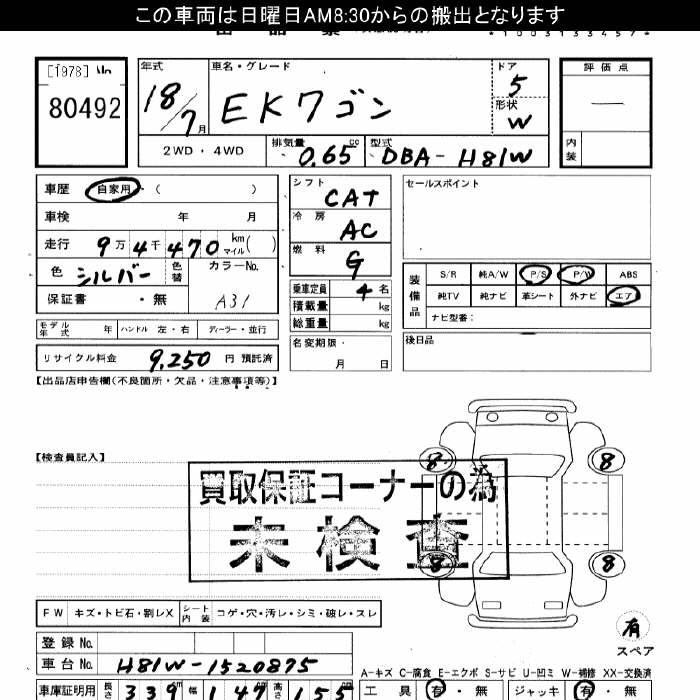 この車両は日曜日AM8:30からの搬出となります
*1003133457*
[1978] No
80492
年式 18/7月
車名・グレード EKワゴン
ドア 5
形状 W
評価点 —
内装
2WD・4WD
排気量 0.65 cc
型式 DBA-H81W
車歴 自家用 ( )
車検 年 月
走行 9万4千470 km マイル( )
色 シルバー 色替 カラーNo. A31
保証書 ・無
モデル年式 年 ハンドル 左・右 ディーラー・並行
リサイクル料金 9,250 円 預託済
シフト CAT
冷房 AC
燃料 G
乗車定員 4 名
積載量 kg
総重量 kg
名変期限・ 月 日
セールスポイント
装備品 S/R 純A/W P/S P/W ABS
純TV 純ナビ 革シート 外ナビ エア
ナビ型番:
後日品
【出品店申告欄(不良箇所・欠品・注意事項等)】
【検査員記入】
買取保証コーナーの為
未検査
8 8
8 8
有
スペア
FW キズ・トビ石・割レX シート内装 コゲ・穴・汚レ・シミ・破レ・スレ
登録 No.
車台 No. H81W-1520875
A-キズ C-腐食 E-エクボ S-サビ U-凹ミ W-補修 XX-交換済
車庫証明用 長さ 339 幅 147 高さ 155
工具 有・無 ジャッキ 有・無